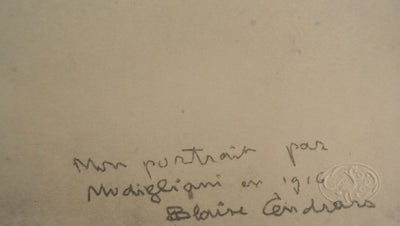 Mon portrait par
Modigliani en 1916
Blaise Cendrars